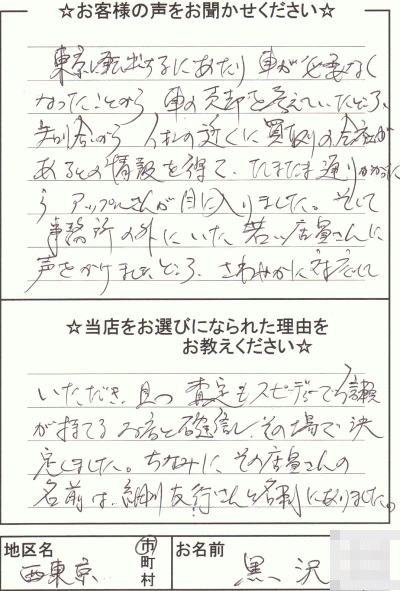 ☆お客様の声をお聞かせください☆
東京に転出するにあたり 車が必要なく
なったことから 車の売却を考えていたところ、
知り合いから 近くに買取りの会社が
あるとの情報を得て、たまたま通りかかった
ら アップルさんが目に入りました。そして
事務所の外にいた若い店員さんに
声をかけましたところ、さわやかに対応して
☆当店をお選びになられた理由を
お教えください☆
いただき、且つ 査定もスピーディーで信頼
が持てるお店と確信し、その場で決
定しました。ちなみに、その店員さんの
名前は、細川友行さんと名刺にありました。
地区名
西東京
市
町
村
お名前
黒沢